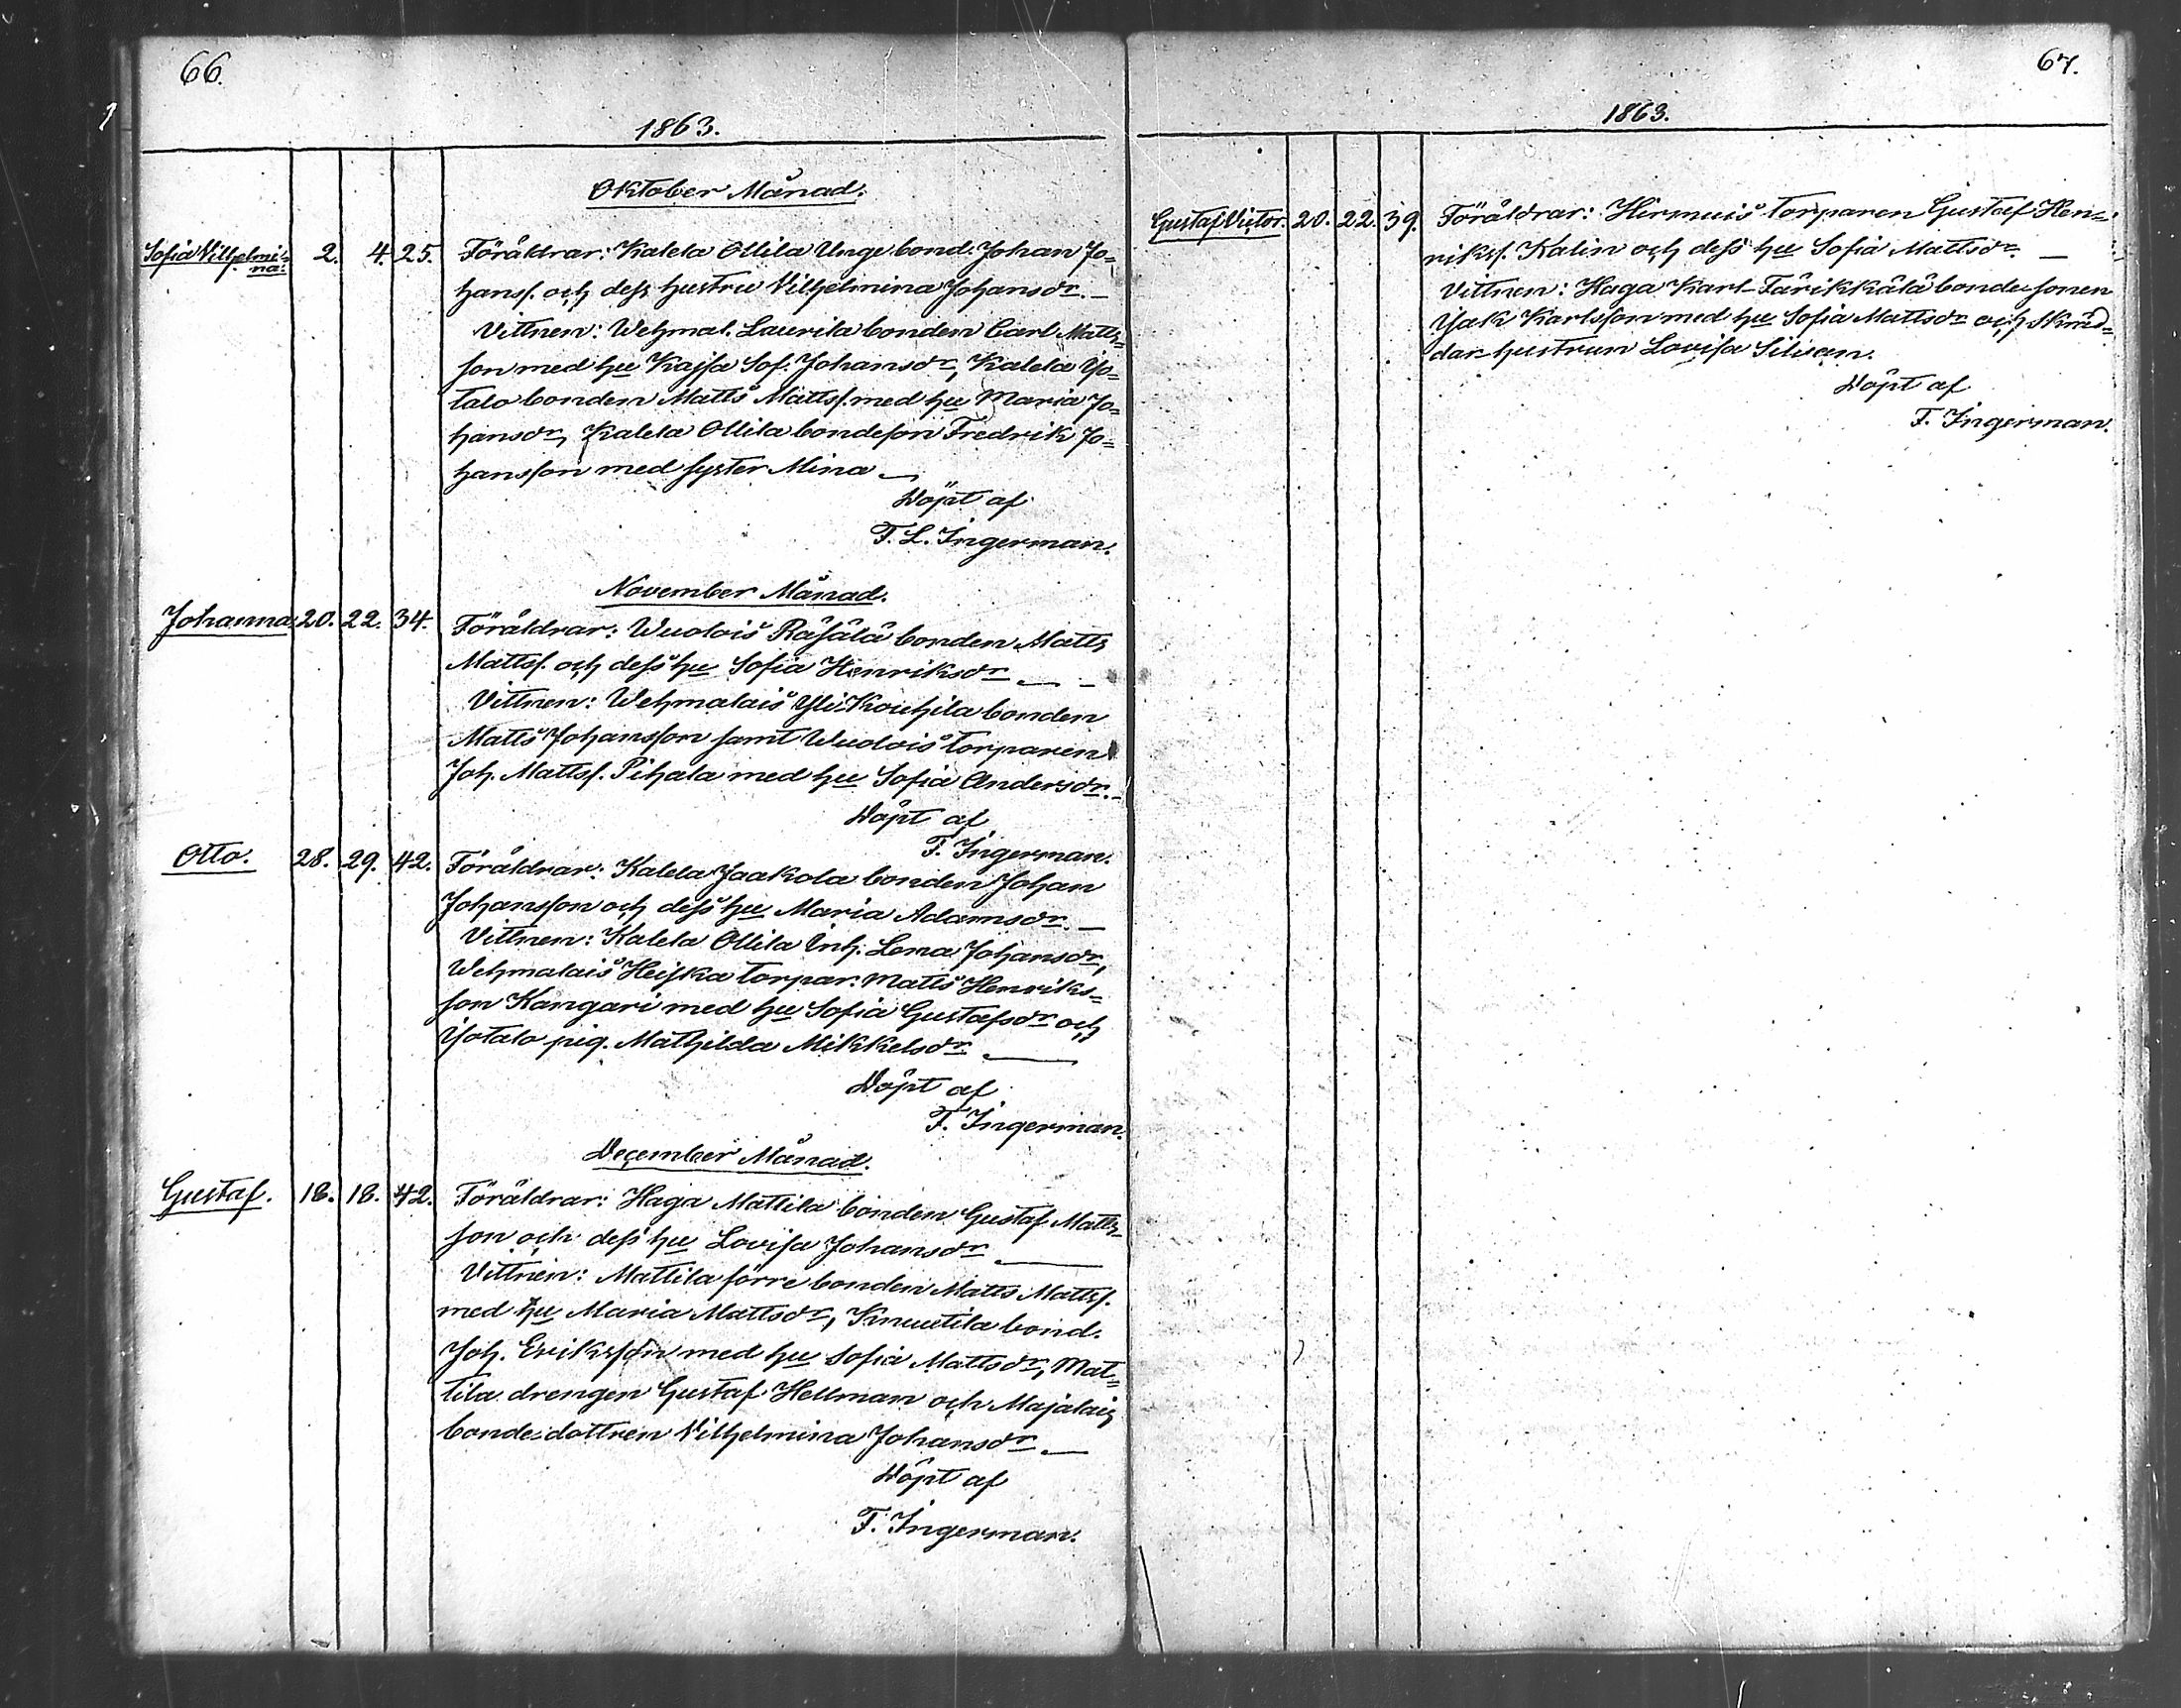 66.
1863.
Oktober Månad.
Sofia Vilhelmi=
na. 2. 4. 25. Föräldrar: Kalela Ollila Unge bond. Johan Jo=
hans. och dess hustru Vilhelmina Johansdr. —
Vittnen: Wehmal. Laurila bonden Carl Matts=
son med hu Kajsa Sof. Johansdr, Kalela Yo=
talo bonden Matts Mattss. med hu Maria Jo=
hansdr, Kalela Ollila bondeson Fredrik Jo=
hansson med syster Mina —
Döpt af
F. L. Ingerman.
November Månad.
Johanna 20. 22. 34. Föräldrar: Wuolois Räsälä bonden Matts
Mattss. och dess hu Sofia Henriksdr — -
Vittnen: Wehmalais Yli-Kouhila bonden
Matts Johansson samt Wuolois torparen
Joh. Mattss. Pihala med hu Sofia Andersdr. -
Döpt af
F. Ingerman.
Otto. 28. 29. 42. Föräldrar: Kalela Jaakola bonden Johan
Johansson och dess hu Maria Adamsdr. —
Vittnen: Kalela Ollila Inh. Lena Johansdr,
Wehmalais Heiska torpar. Matts Henriks=
son Kangari med hu Sofia Gustafsdr och
Yotalo pig. Mathilda Mikkelsdr —
Döpt af
F. Ingerman.
December Månad.
Gustaf. 18. 18. 42. Föräldrar: Haga Mattila bonden Gustaf Matts=
son och dess hu Lovisa Johansdr —
Vittnen: Mattila förre bonden Matts Mattss.
med hu Maria Mattsdr, Knuutila bond.
Joh. Eriksson med hu Sofia Mattsdr, Mat=
tila drengen Gustaf Hellman och Majalais
bonde=dottren Vilhelmina Johansdr —
Döpt af
F. Ingerman.
67.
1863.
Gustaf Victor. 20. 22. 39. Föräldrar: Hirmuis torparen Gustaf Hen=
rikss. Kalin och dess hu Sofia Mattsdr. —
Vittnen: Haga Karl-Färikkälä bonde-sonen
Isak Karlsson med hu Sofia Mattsdr och Skräd=
dar-hustrun Lovisa Silisen.
Döpt af
F. Ingerman.